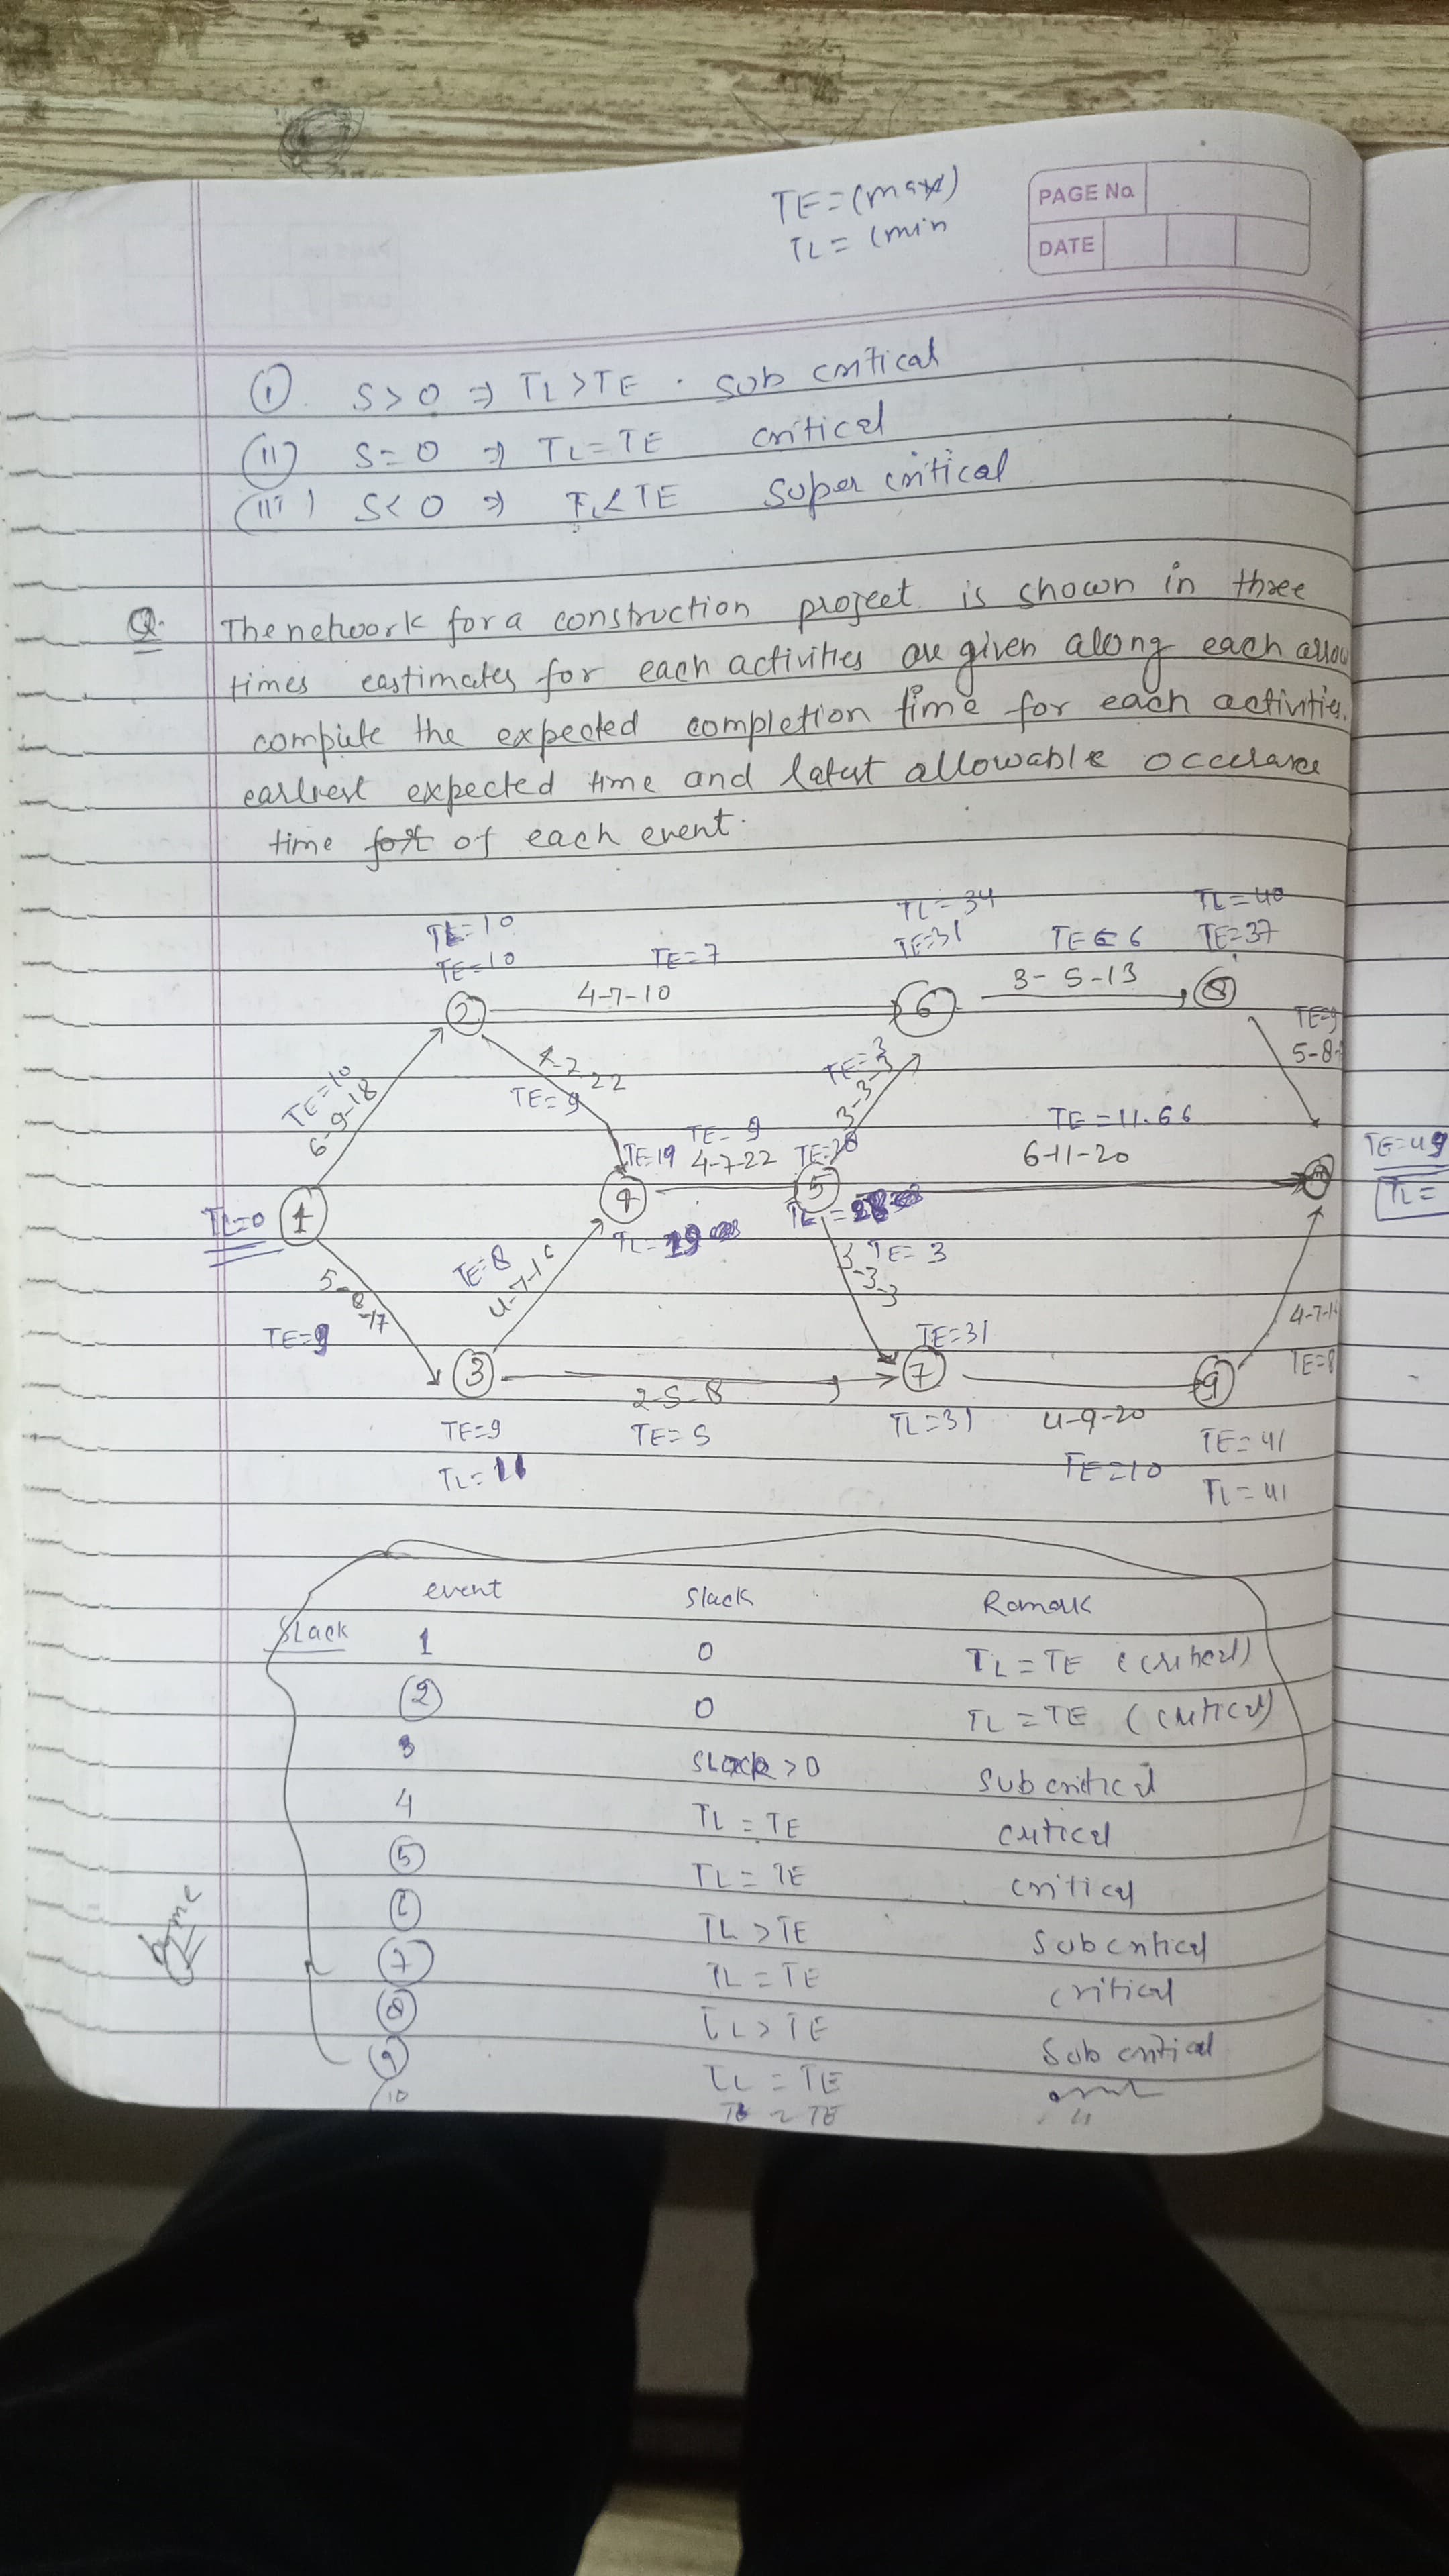 TE = (max)
TL = (min
PAGE No
DATE
(i) S > 0 ⇒ TL > TE . sub critical
(ii) S = 0 ⇒ TL = TE critical
(iii) S < 0 ⇒ TL < TE super critical
Q. The network for a construction project is shown in three
times eastimates for each activities are given along each arrow
compute the expected completion time for each activities.
earliest expected time and latest allowable
time of each event.
TL = 10
TE = 10
TE = 7
4-7-10
TL = 34
TE = 31
TE = 6
3-5-13
TL = 40
TE = 37
2
6
8
TE = 9
5-8-
TE = 10
6-9-18
22
TE = 9
TE = 3
3-3-3
TE = 11.66
6-11-20
TE = 19
TE = 9
4-7-22
TE = 28
TE = 49
TL =
TL = 0
1
4
5
TL = 19
TL = 28
5-8-17
TE = 9
TE = 8
4-7-16
3-3-3
TE = 3
4-7-
TE = 8
TE = 31
3
7
9
2-5-8
TE = 5
TE = 9
TL = 11
TL = 31
4-9-20
TE = 10
TE = 41
TL = 41
event Slack Remark
Slack 1 0 TL = TE (critical)
2 0 TL = TE (critical)
3 Slack > 0 Subcritical
4 TL = TE critical
5 TL = TE critical
6 TL > TE Subcritical
7 TL = TE critical
8 TL > TE Sub critical
9 TL = TE
10 TL = TE "